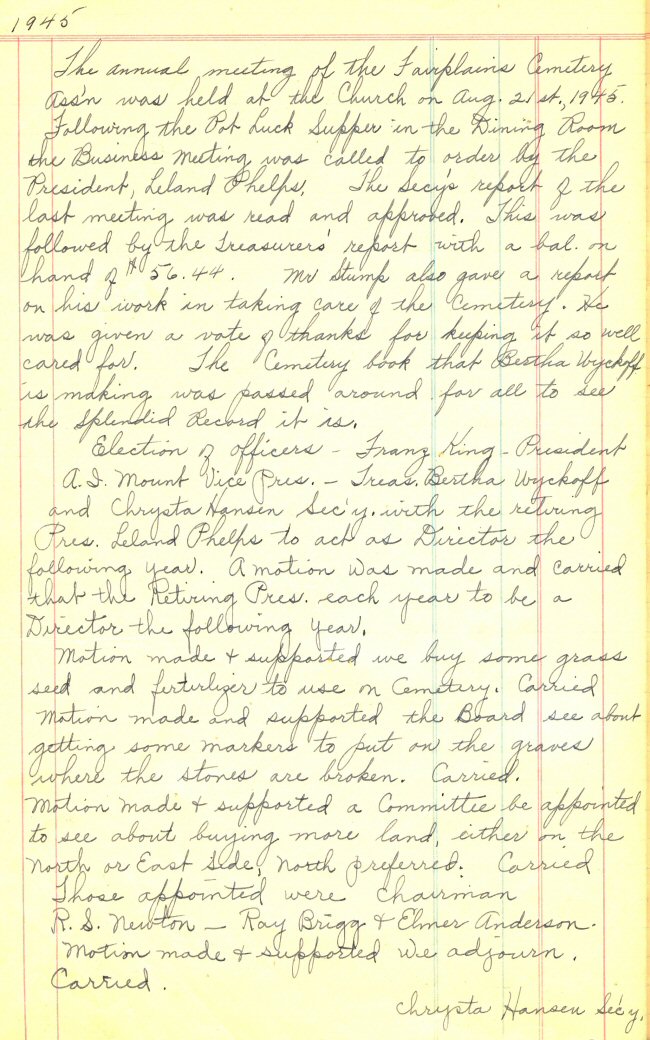 1945
The annual meeting of the Fairplains Cemetery
Ass'n was held at the Church on Aug. 21st, 1945.
Following the Pot Luck Supper in the Dining Room
the Business Meeting was called to order by the
President, Leland Phelps. The Sec'y's report of the
last meeting was read and approved. This was
followed by the Treasurers' report with a bal. on
hand of $56.44. Mr Stump also gave a report
on his work in taking care of the Cemetery. He
was given a vote of thanks for keeping it so well
cared for. The Cemetery book that Bertha Wyckoff
is making was passed around for all to see
the Splendid Record it is.
Election of officers - Franz King - President
A. I. Mount Vice Pres. - Treas. Bertha Wyckoff
and Chrysta Hansen Sec'y. with the retiring
Pres. Leland Phelps to act as Director the
following year. A motion was made and carried
that the Retiring Pres. each year to be a
Director the following year.
Motion made & supported we buy some grass
seed and ferterlizer to use on Cemetery. Carried
Motion made and supported the Board see about
getting some markers to put on the graves
where the stones are broken. Carried.
Motion made & supported a Committee be appointed
to see about buying more land, either on the
North or East Side, North preferred. Carried
Those appointed were Chairman
R. S. Newton - Ray Brigg & Elmer Anderson.
Motion made & supported we adjourn.
Carried.
Chrysta Hansen Sec'y.